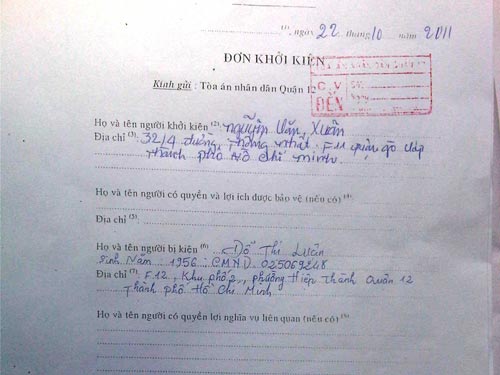 (1) ngày 22 tháng 10 năm 2011
ĐƠN KHỞI KIỆN
Kính gửi : Tòa án nhân dân Quận 12
C.V
ĐẾN
Họ và tên người khởi kiện (2): Nguyễn Văn Xuân
Địa chỉ (3): 32/4 đường Thống nhất F11 quận gò Vấp
thành phố Hồ Chí Minh.
Họ và tên người có quyền và lợi ích được bảo vệ (nếu có) (4)
Địa chỉ (5)
Họ và tên người bị kiện (6) Đỗ Thị Luân
Sinh Năm 1956 : CMND 025069248
Địa chỉ (7): F.12, Khu phố 2, phường Hiệp Thành Quận 12
Thành phố Hồ Chí Minh
Họ và tên người có quyền lợi nghĩa vụ liên quan (nếu có)